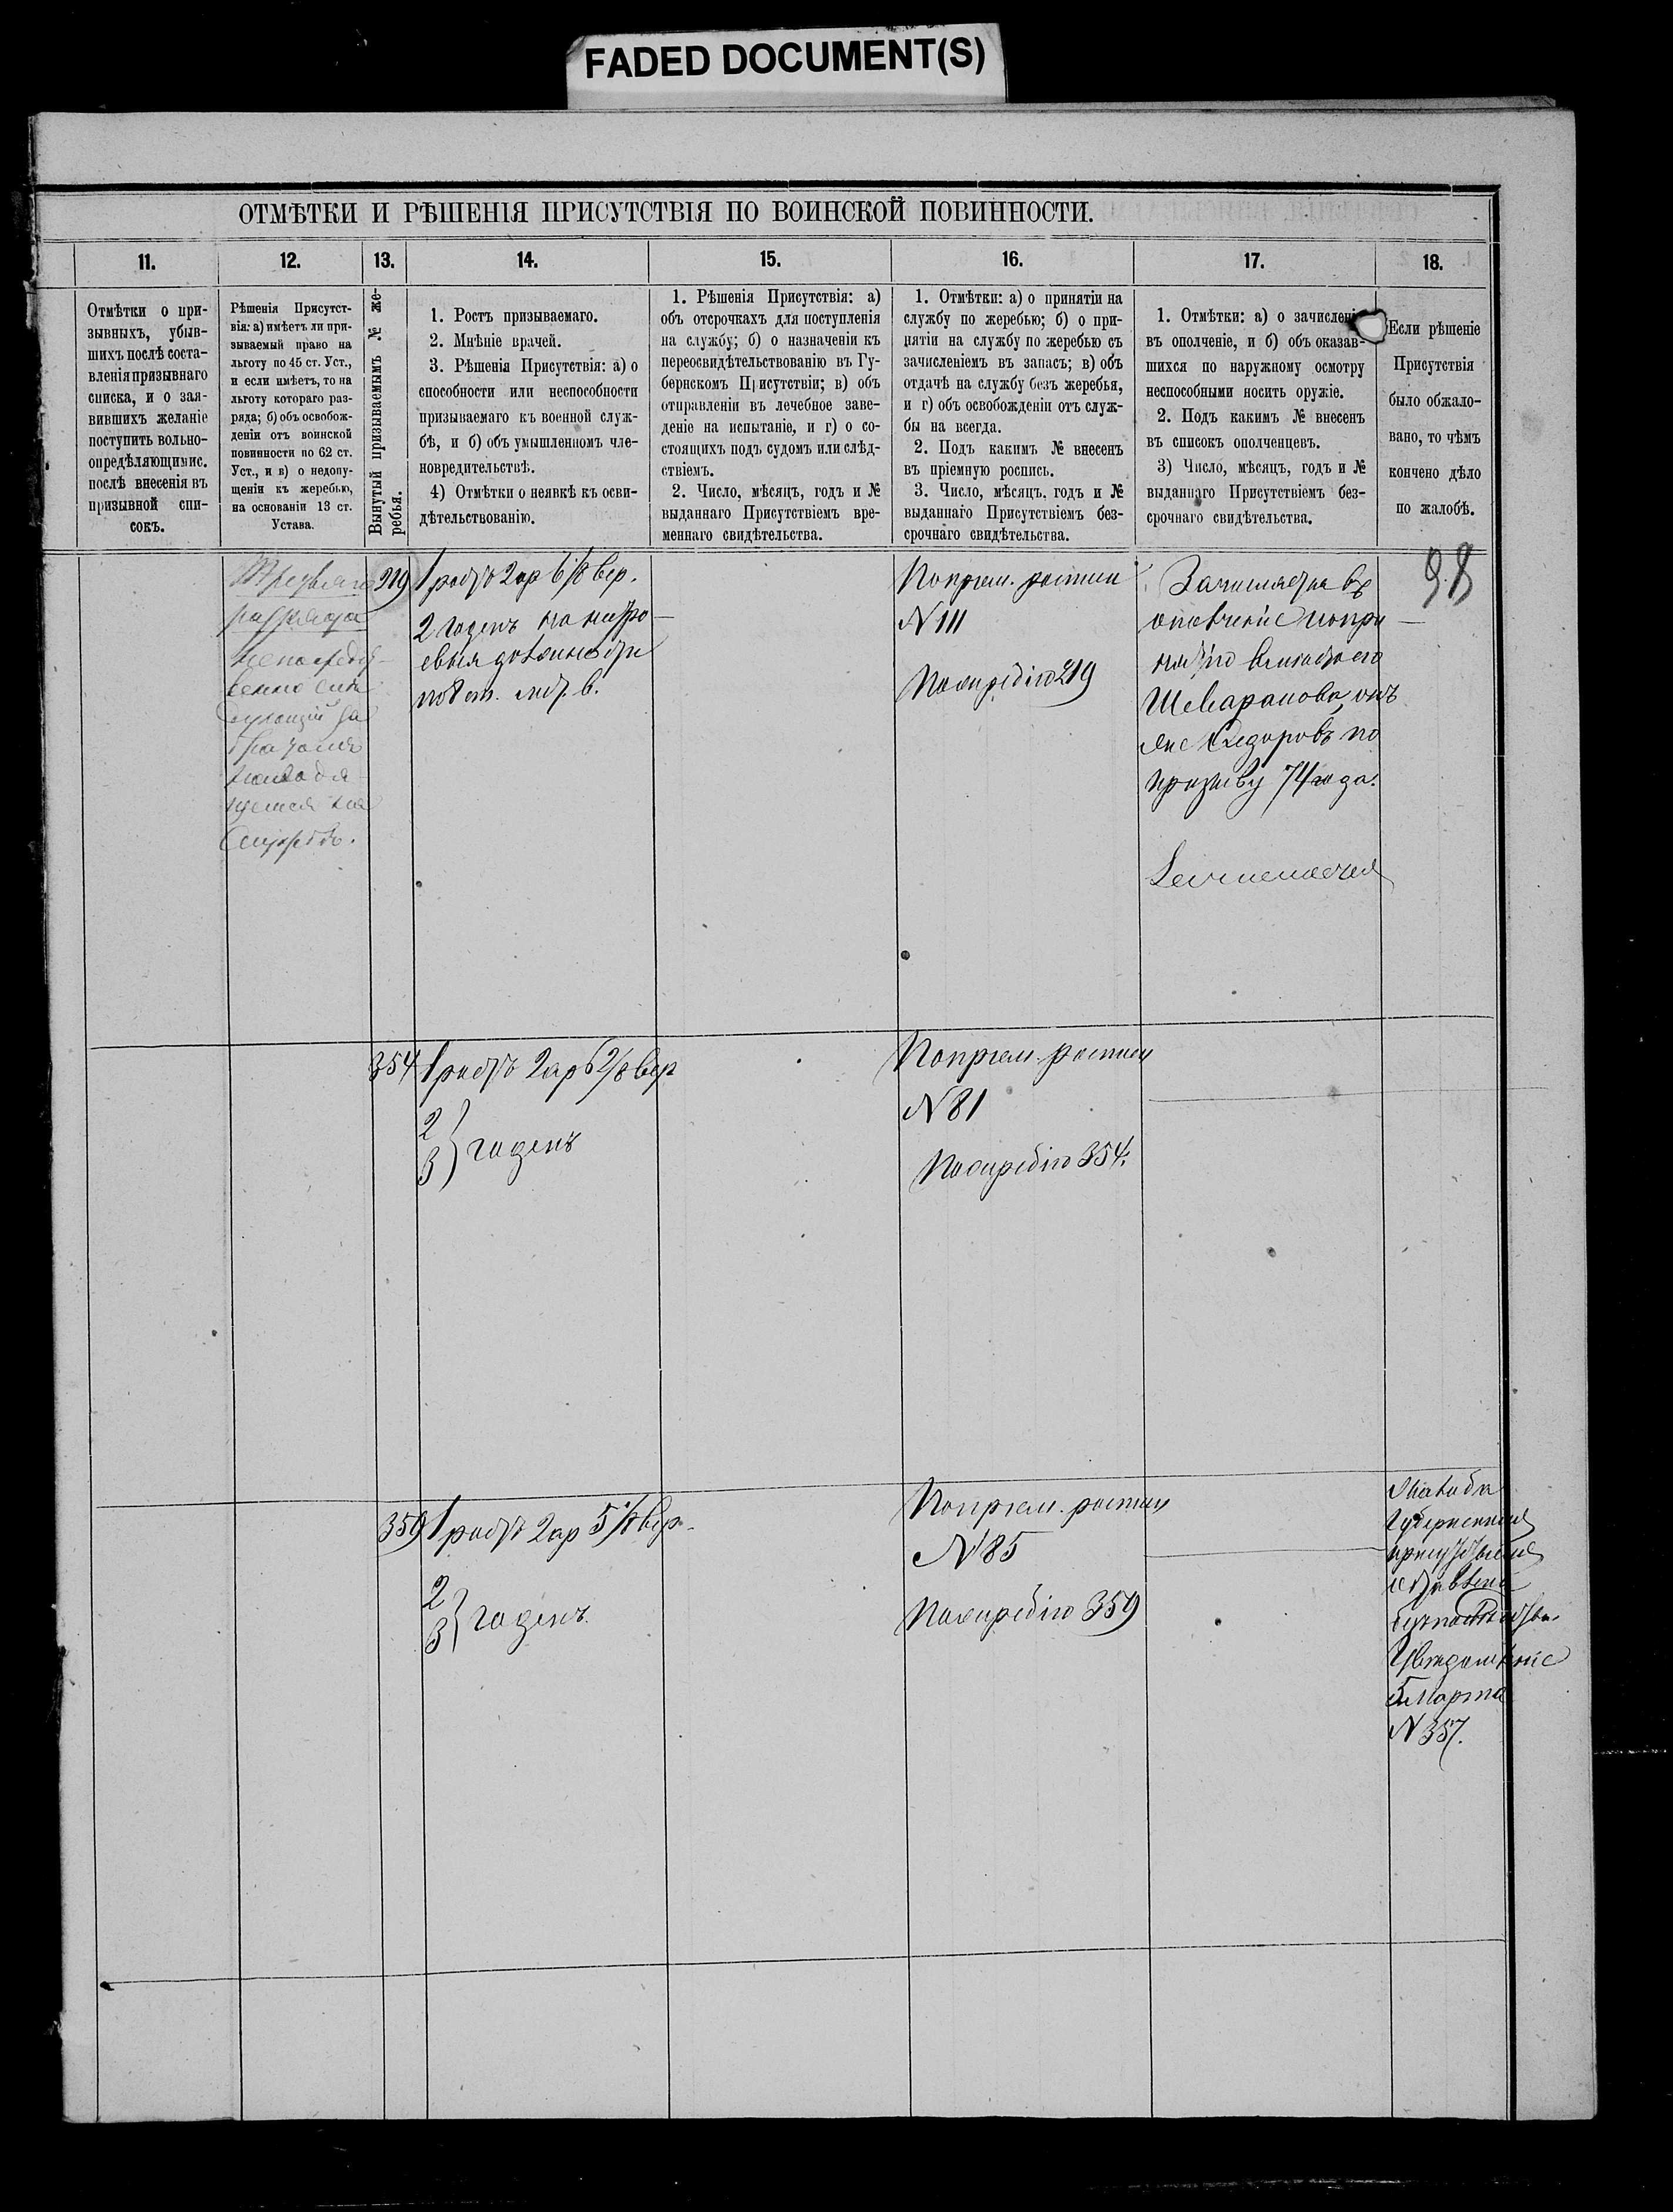 FADED DOCUMENT(S)
ОТМѢТКИ И РѢШЕНІЯ ПРИСУТСТВІЯ ПО ВОИНСКОЙ ПОВИННОСТИ.
11.
12.
13.
14.
15.
16.
17.
18.
Отмѣтки о при-
зывныхъ, убыв-
шихъ послѣ соста-
вленія призывнаго
списка, и о зая-
вившихъ желаніе
поступить вольно-
опредѣляющимис.
послѣ внесенія въ
призывной спи-
сокъ.
Рѣшенія Присутст-
вія: а) имѣетъ ли при-
зываемый право на
льготу по 45 ст. Уст.,
и если имѣетъ, то на
льготу котораго раз-
ряда; б) объ освобож-
деніи отъ воинской
повинности по 62 ст.
Уст., и в) о недопу-
щеніи къ жеребью,
на основаніи 13 ст.
Устава.
Вынутый призываемымъ № же-
ребья.
1. Ростъ призываемаго.
2. Мнѣніе врачей.
3. Рѣшенія Присутствія: а) о
способности или неспособности
призываемаго къ военной служ-
бѣ, и б) объ умышленномъ чле-
новредительствѣ.
4) Отмѣтки о неявкѣ къ осви-
дѣтельствованію.
1. Рѣшенія Присутствія: а)
объ отсрочкахъ для поступленія
на службу; б) о назначеніи къ
переосвидѣтельствованію въ Гу-
бернскомъ Присутствіи; в) объ
отправленіи въ лечебное заве-
деніе на испытаніе, и г) о со-
стоящихъ подъ судомъ или слѣд-
ствіемъ.
2. Число, мѣсяцъ, годъ и №
выданнаго Присутствіемъ вре-
меннаго свидѣтельства.
1. Отмѣтки: а) о принятіи на
службу по жеребью; б) о при-
нятіи на службу по жеребью съ
зачисленіемъ въ запасъ; в) объ
отдачѣ на службу безъ жеребья,
и г) объ освобожденіи отъ служ-
бы на всегда.
2. Подъ какимъ № внесенъ
въ пріемную роспись.
3. Число, мѣсяцъ, годъ и №
выданнаго Присутствіемъ без-
срочнаго свидѣтельства.
1. Отмѣтки: а) о зачисленіи
въ ополченіе, и б) объ оказав-
шихся по наружному осмотру
неспособными носить оружіе.
2. Подъ какимъ № внесенъ
въ списокъ ополченцевъ.
3) Число, мѣсяцъ, годъ и №
выданнаго Присутствіемъ без-
срочнаго свидѣтельства.
Если рѣшеніе
Присутствія
было обжало-
вано, то чѣмъ
кончено дѣло
по жалобѣ.
98
разряда
непосредст-
венно слѣ
дующій за
братомъ
находя
щемся на
службѣ.
219
1 ростъ 2 ар 6 1/8 вер.
2 годенъ на
Попріем. росписи
N 111
По жеребію 219
Зачисляется въ
ополченіе
по
призыву 74 года.
354
1 ростъ 2 ар 6 2/8 вер
2
3 } годенъ
Попріем. росписи
N 81
По жеребію 354.
359
1 ростъ 2 ар 5 1/8 вер.
2
3 } годенъ.
Попріем. росписи
N 85
По жеребію 359
Жалоба
Губернскимъ
присутствіемъ
оставлена
безъ послѣдствій.
Увѣдомленіе
5 Марта
N 357.